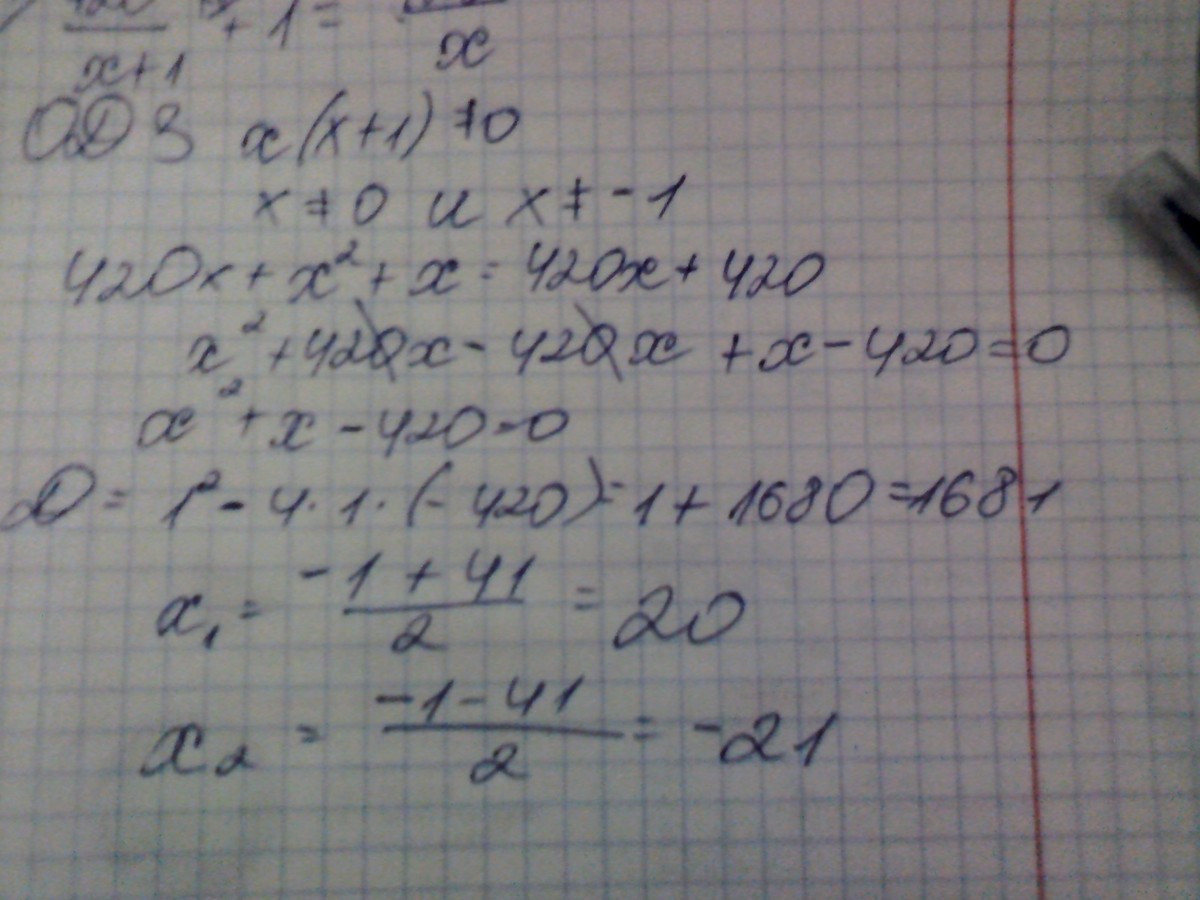 x+1 + 1 = x
ОДЗ x(x+1) ≠ 0
x ≠ 0 и x ≠ -1
420x + x² + x = 420x + 420
x² + 420x - 420x + x - 420 = 0
x² + x - 420 = 0
D = 1² - 4·1·(-420) = 1 + 1680 = 1681
x₁ = -1 + 41 / 2 = 20
x₂ = -1 - 41 / 2 = -21